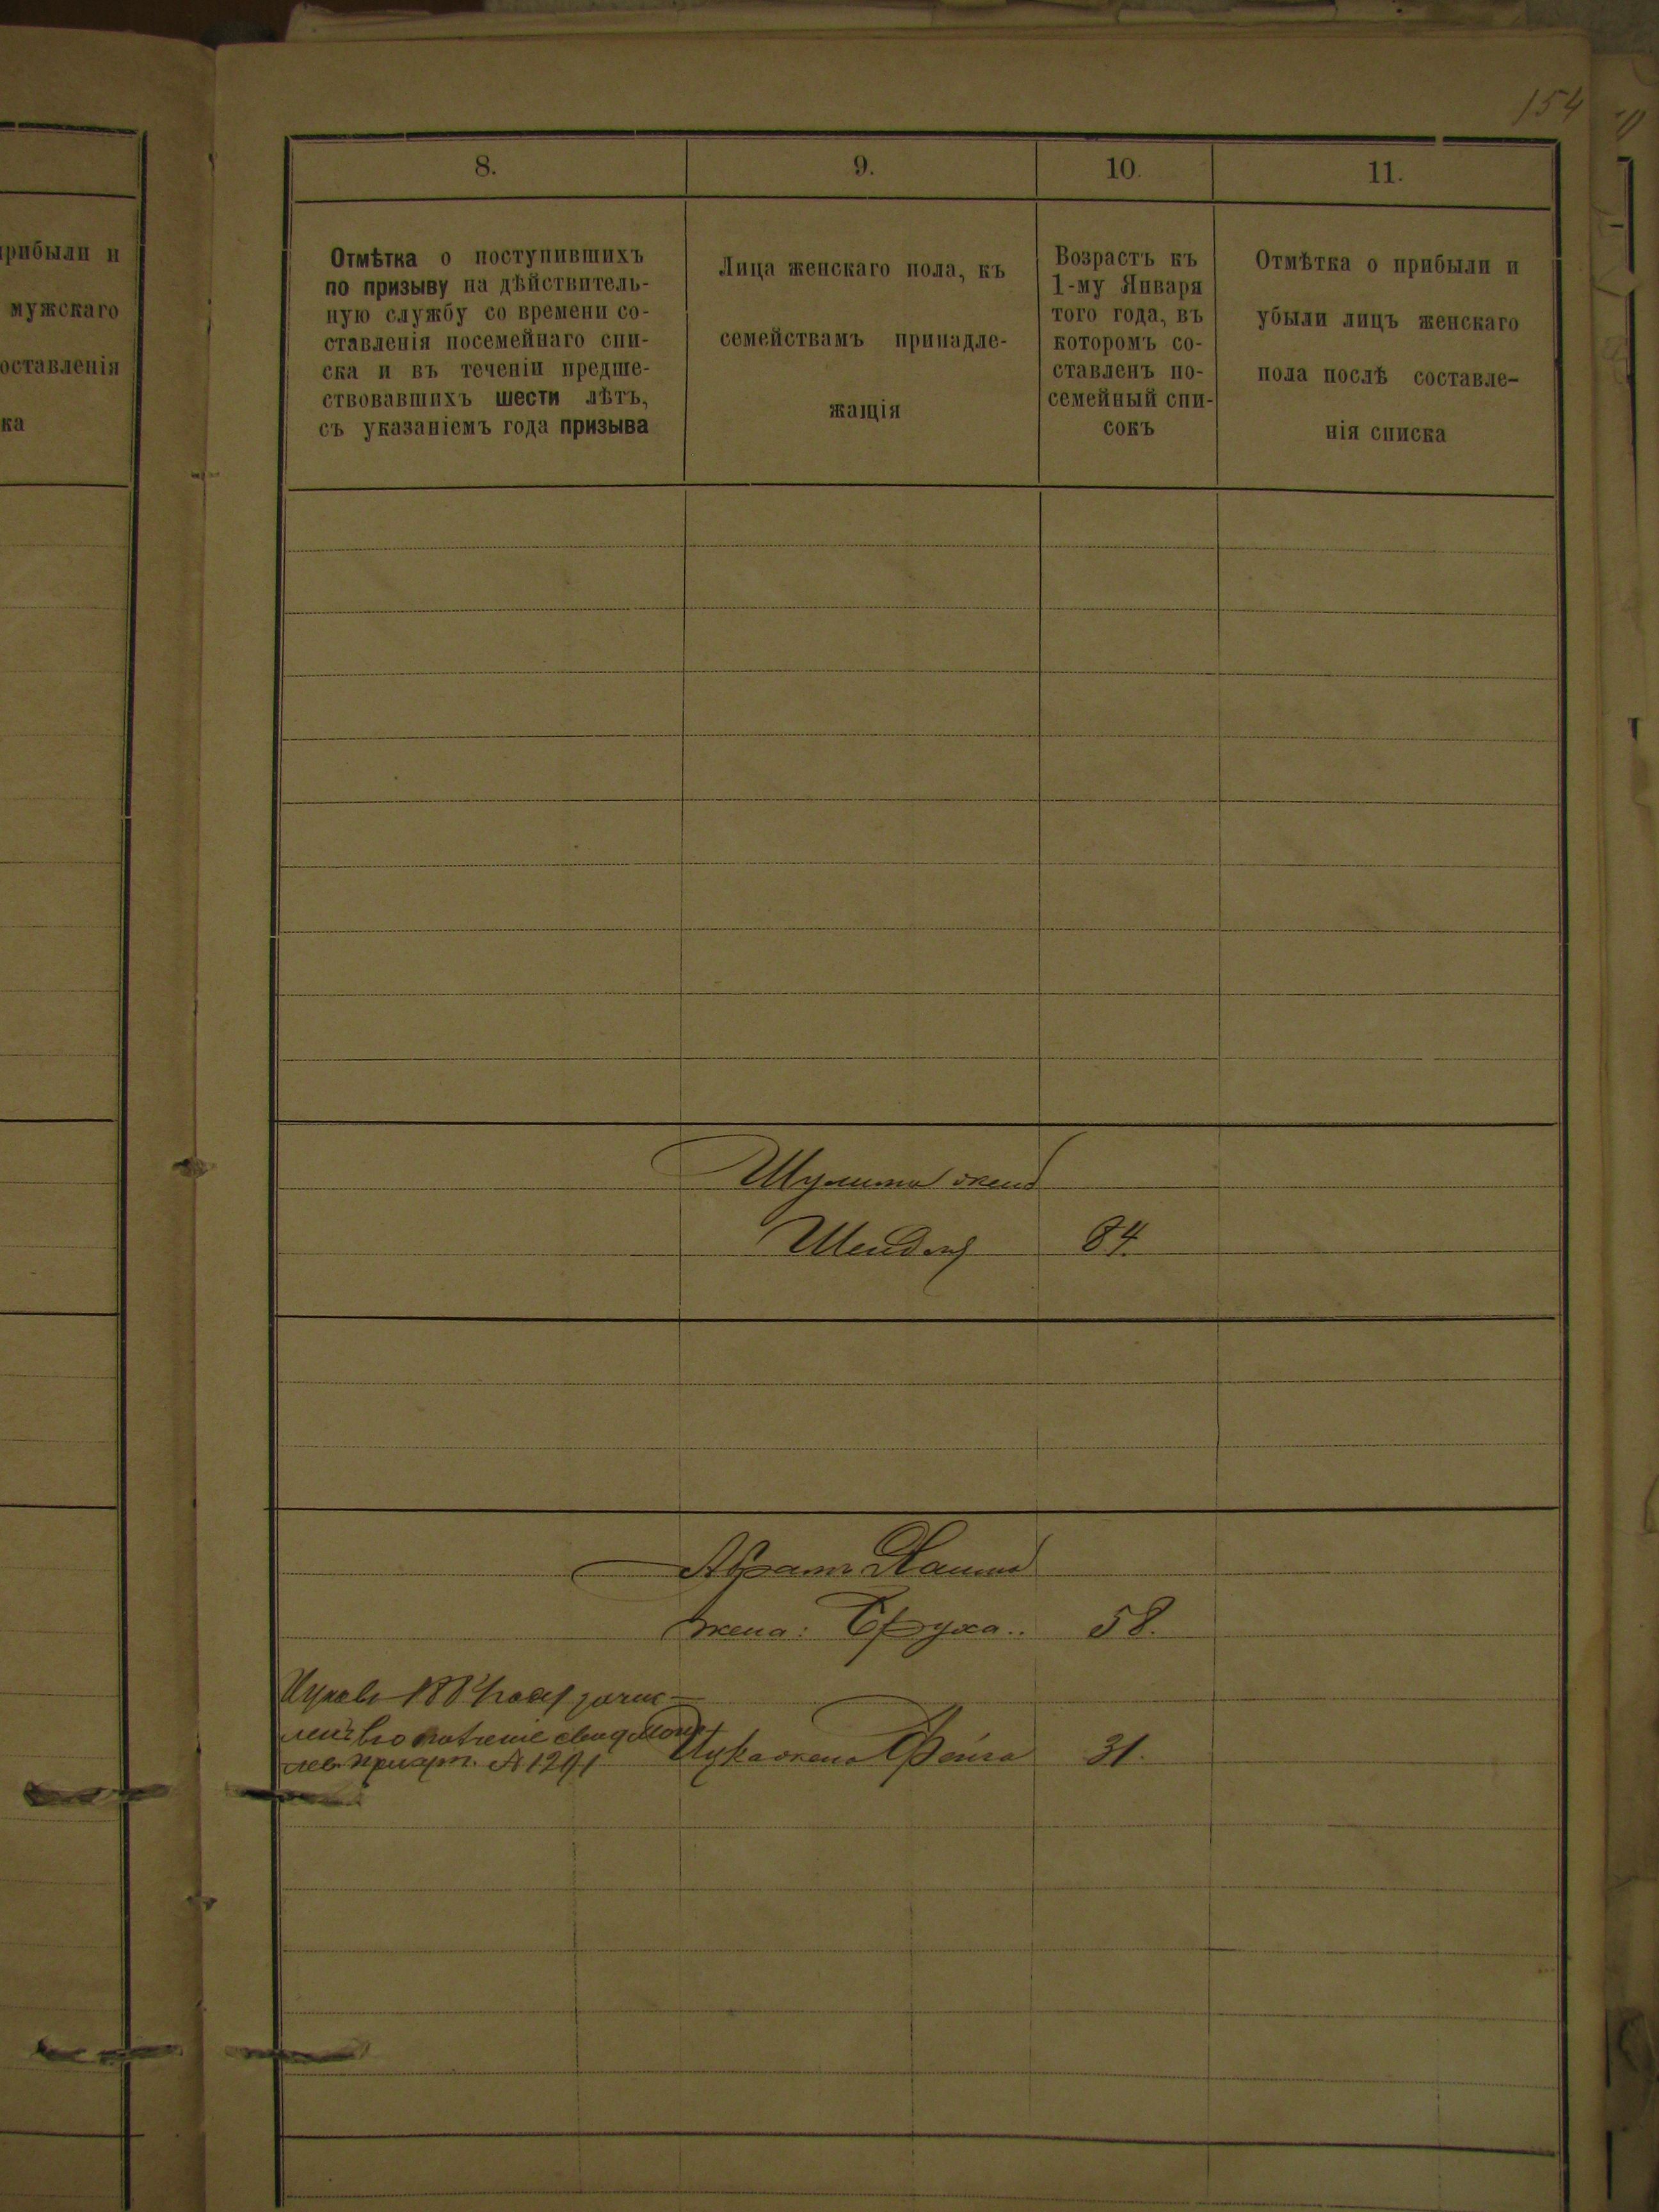 154
рибыли и
мужскаго
оставленія
ка
8.
9.
10.
11.
Отмѣтка о поступившихъ
по призыву на дѣйствитель-
ную службу со времени со-
ставленія посемейнаго спи-
ска и въ теченіи предше-
ствовавшихъ шести лѣтъ,
съ указаніемъ года призыва
Лица женскаго пола, къ
семействамъ принадле-
жащія
Возрастъ къ
1-му Января
того года, въ
которомъ со-
ставленъ по-
семейный спи-
сокъ
Отмѣтка о прибыли и
убыли лицъ женскаго
пола послѣ составле-
нія списка
жена
84.
Абрамъ
жена: Бруха..
58.
1884 года зачис-
№ 1291
жена Фейга
31.